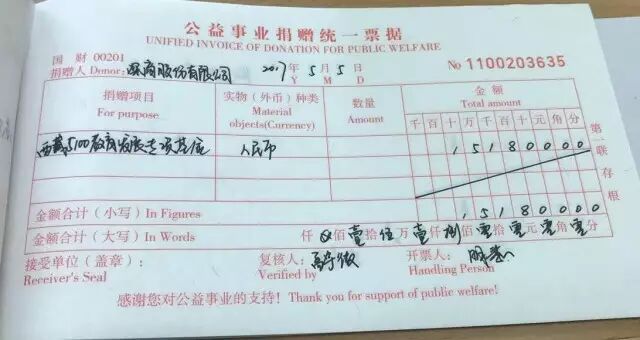 公益事业捐赠统一票据
UNIFIED INVOICE OF DONATION FOR PUBLIC WELFARE
国 财 00201
捐赠人 Donor: 股份有限公司 2017年 5月 5日 No 1100203635
Y M D
捐赠项目 实物（外币）种类 数量 金额
For purpose Material objects(Currency) Amount Total amount
千百十万千百十元角分
西藏5100教育发展专项基金 人民币 1 5 1 8 0 0 0 0
金额合计（小写）In Figures 1 5 1 8 0 0 0 0
金额合计（大写）In Words 仟 佰壹拾伍万壹仟捌佰零拾零元零角零分
第一联 存根
接受单位（盖章）： 复核人： 开票人：
Receiver's Seal Verified by Handling Person
感谢您对公益事业的支持！Thank you for support of public welfare!